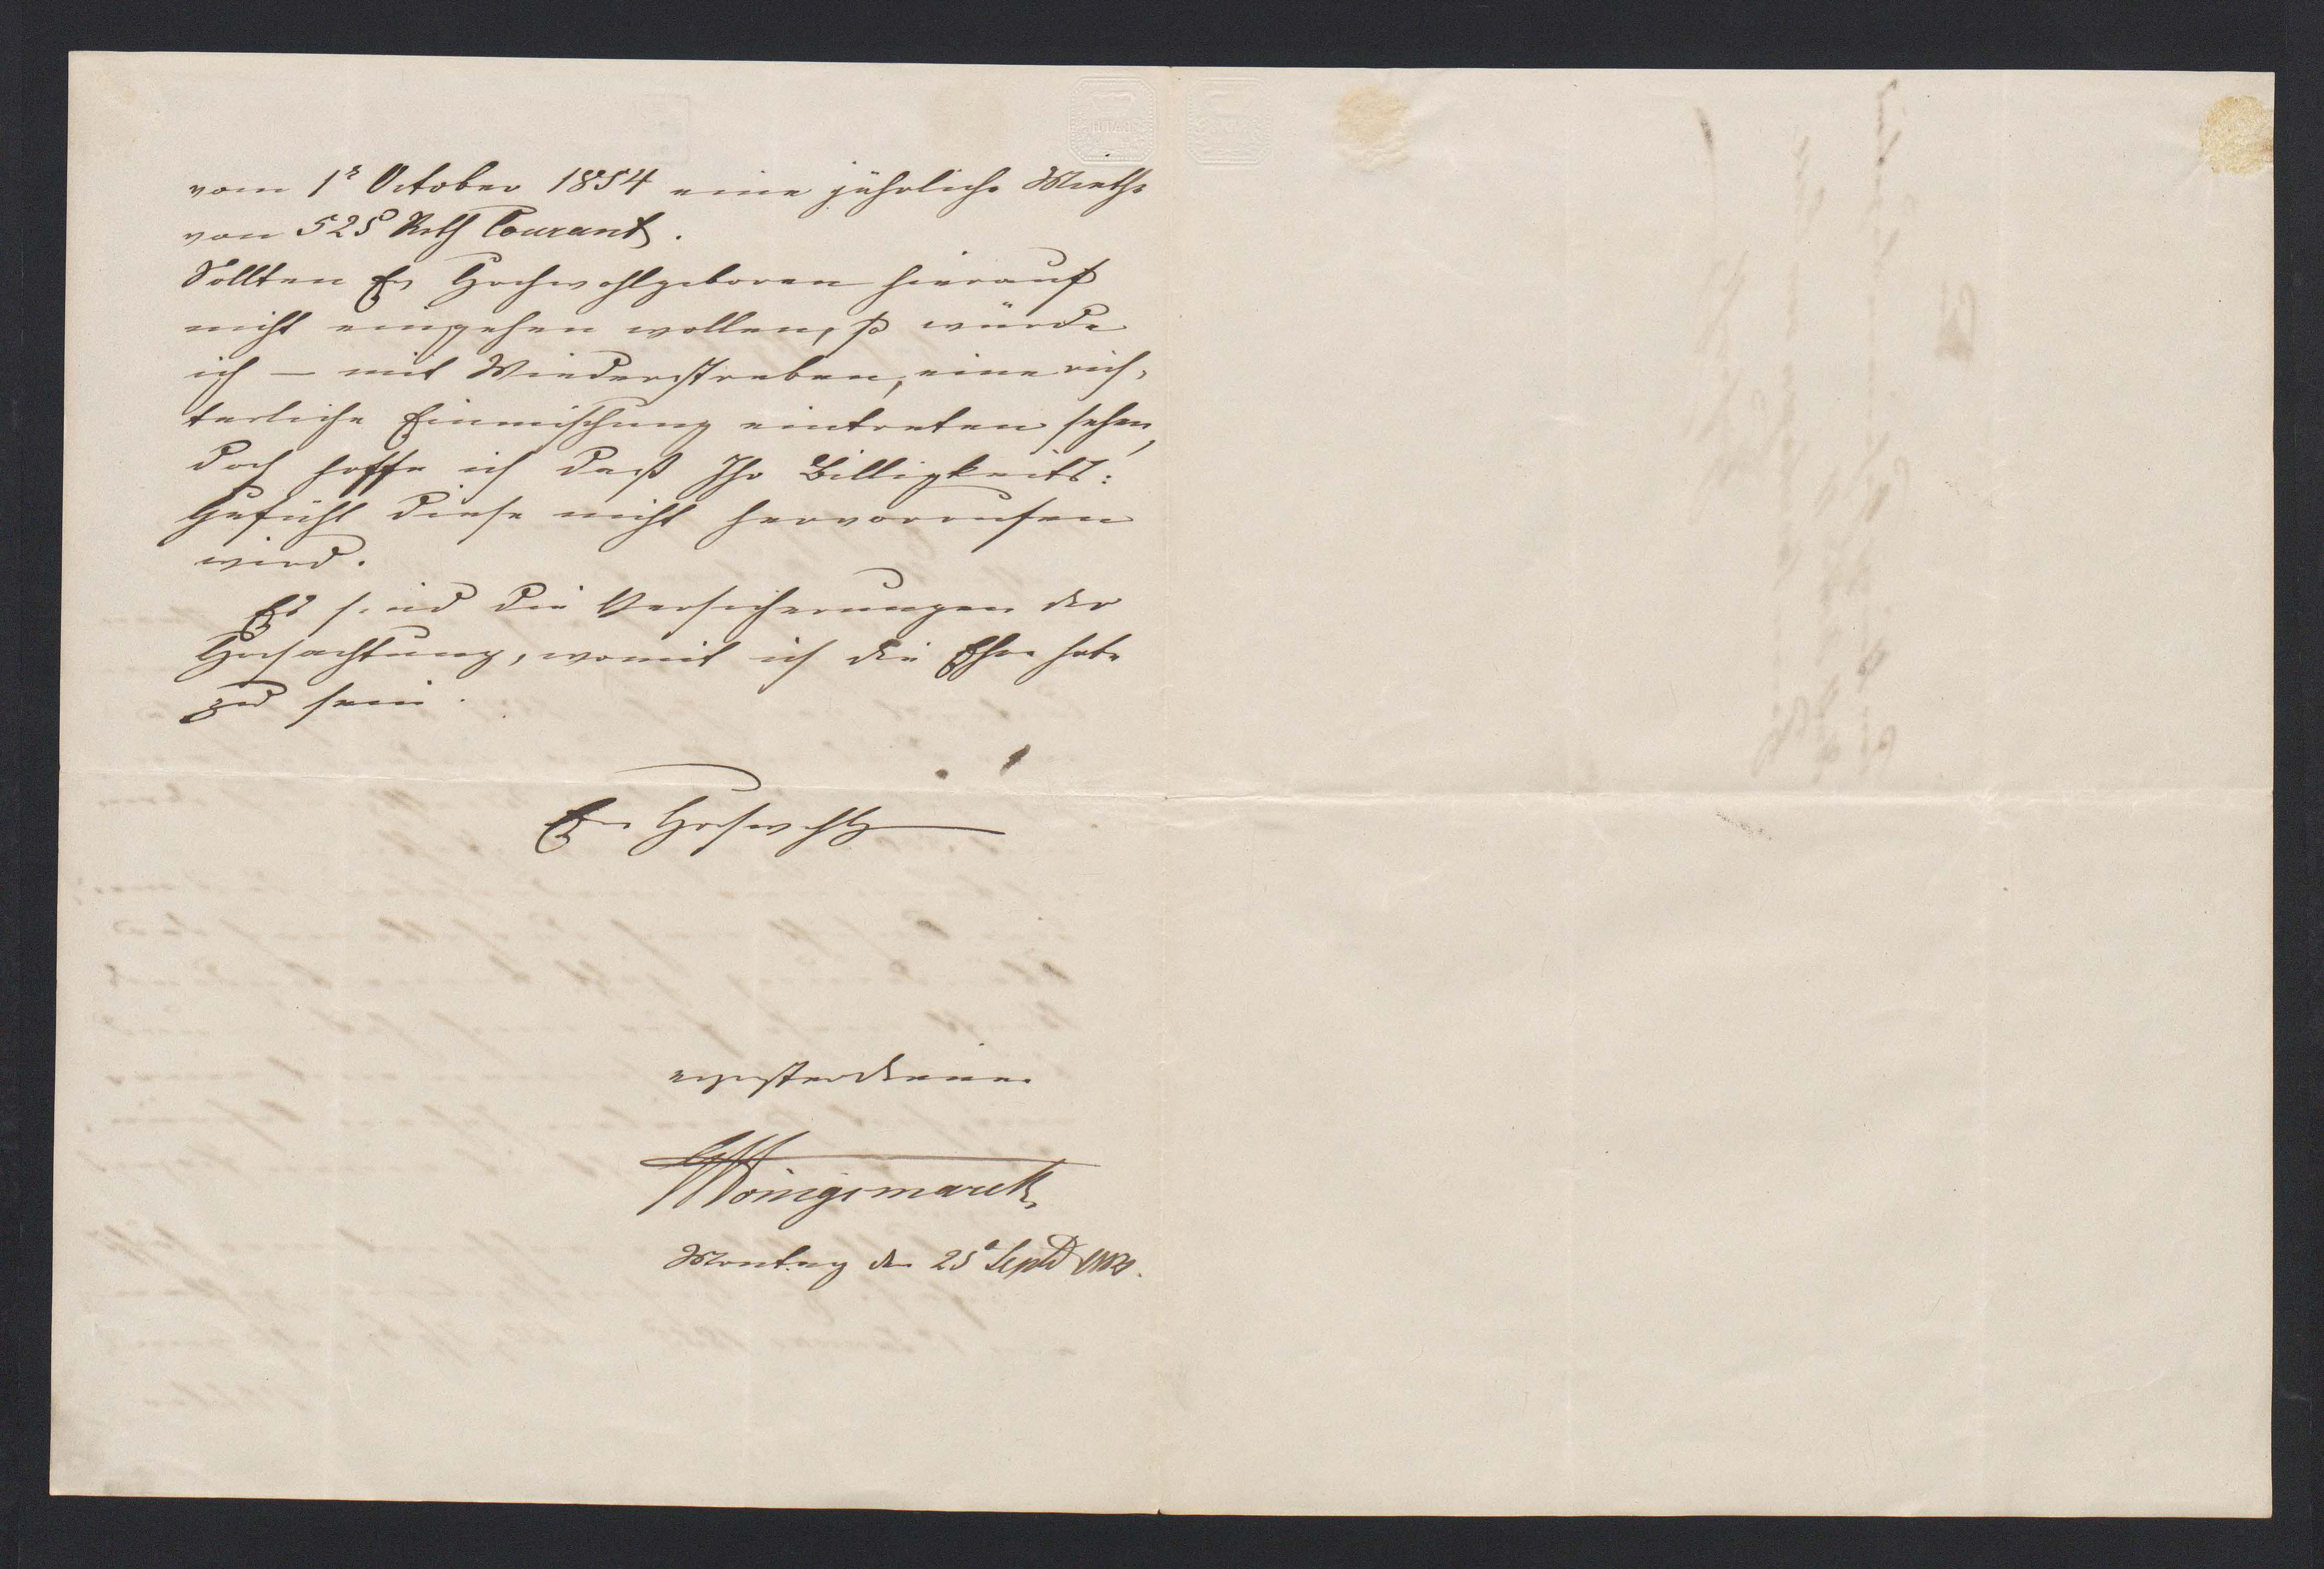 vom 1ͬ October 1854 eine jährliche Miethe
von 525 Rth Courant.
Sollten Ew Hochwohlgeboren hierauf
nicht eingehen wollen, so würde
ich — mit Wiederstreben, eine rich-
terliche Einmischung eintreten sehen,
doch hoffe ich daß Ihr Billigkeits:
Gefühl diese nicht hervorrufen
wird.
Es sind die Versicherungen der
Hochachtung, womit ich die Ehre habe
zu sein.
Ew Hochwohlg
ergebenster Diener
Königsmarck
Montag den 25ͭ Septb